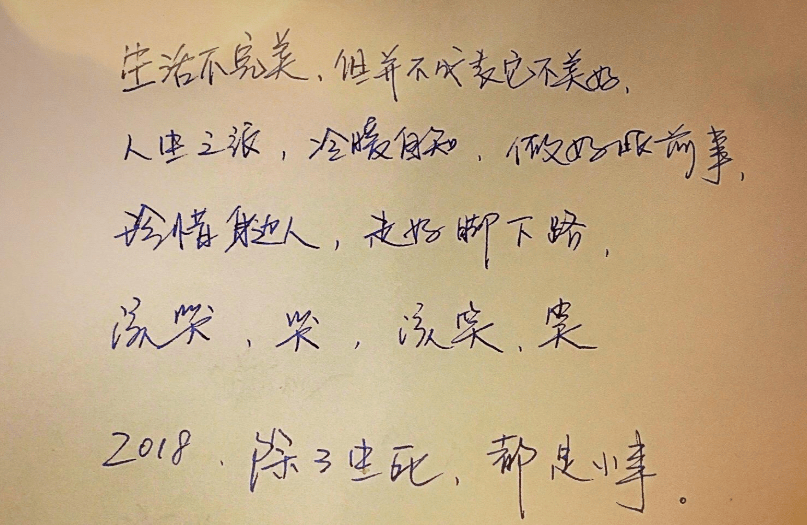 生活不完美、但并不代表它不美好、
人生之旅，冷暖自知、做好眼前事、
珍惜身边人，走好脚下路、
该哭、哭，该笑、笑
2018、除了生死、都是小事。